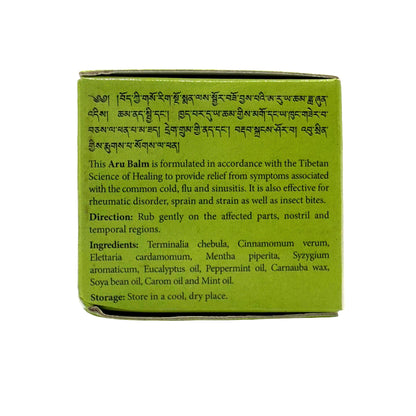 ༄༅། །བོད་ཀྱི་གསོ་རིག་སྔོ་སྨན་ལས་སྦྱོར་བཟོ་བྱས་པའི་ཨ་རུ་
འདིས། ཆམ་ནད་སྤྱི་དང་།
This Aru Balm is formulated in accordance with the Tibetan
Science of Healing to provide relief from symptoms associated
with the common cold, flu and sinusitis. It is also effective for
rheumatic disorder, sprain and strain as well as insect bites.
Direction: Rub gently on the affected parts, nostril and
temporal regions.
Ingredients: Terminalia chebula, Cinnamomum verum,
Elettaria cardamomum, Mentha piperita, Syzygium
aromaticum, Eucalyptus oil, Peppermint oil, Carnauba wax,
Soya bean oil, Carom oil and Mint oil.
Storage: Store in a cool, dry place.